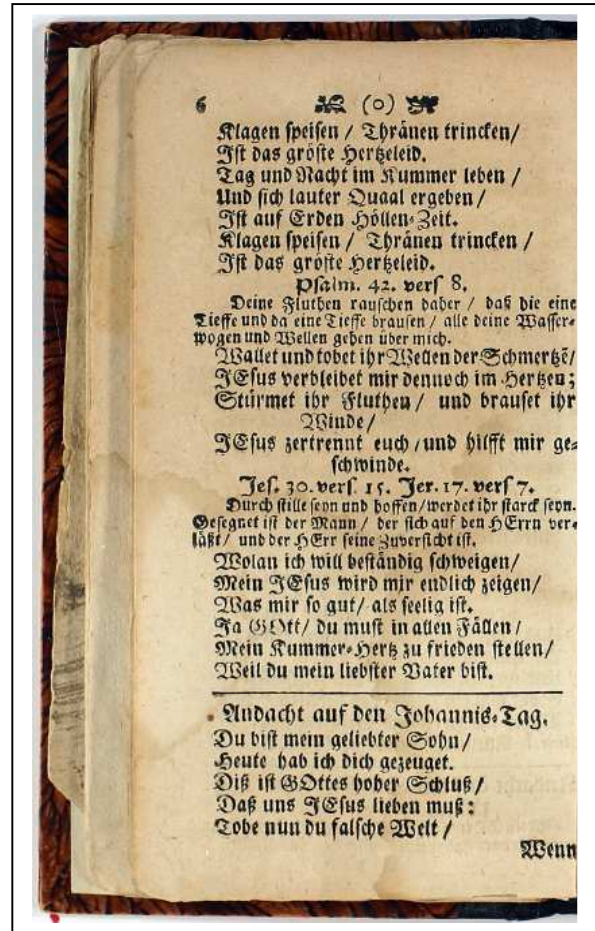 6 (o)
Klagen speisen / Thränen trincken/
Ist das gröste Hertzeleid.
Tag und Nacht im Kummer leben /
Und sich lauter Quaal ergeben /
Ist auf Erden Höllen-Zeit.
Klagen speisen / Thränen trincken /
Ist das gröste Hertzeleid.
Psalm. 42. vers 8.
Deine Fluthen rauschen daher / daß die eine
Tieffe und da eine Tieffe brausen / alle deine Wasser-
wogen und Wellen gehen über mich.
Wallet und tobet ihr Wellen der Schmertzē/
JEsus verbleibet mir dennoch im Hertzen;
Stürmet ihr Fluthen / und brauset ihr
Winde/
JEsus zertrennt euch / und hilfft mir ge-
schwinde.
Jes. 30. vers. 15. Jer. 17. vers 7.
Durch stille seyn und hoffen/werdet ihr starck seyn.
Gesegnet ist der Mann / der sich auf den HErrn ver-
läßt / und der HErr seine Zuversicht ist.
Wolan ich will beständig schweigen/
Mein JEsus wird mir endlich zeigen/
Was mir so gut/ als seelig ist.
Ja GOtt/ du must in allen Fällen /
Mein Kummer-Hertz zu frieden stellen/
Weil du mein liebster Vater bist.
Andacht auf den Johannis-Tag.
Du bist mein geliebter Sohn/
Heute hab ich dich gezeuget.
Diß ist GOttes hoher Schluß/
Daß uns JEsus lieben muß:
Tobe nun du falsche Welt /
Wenn